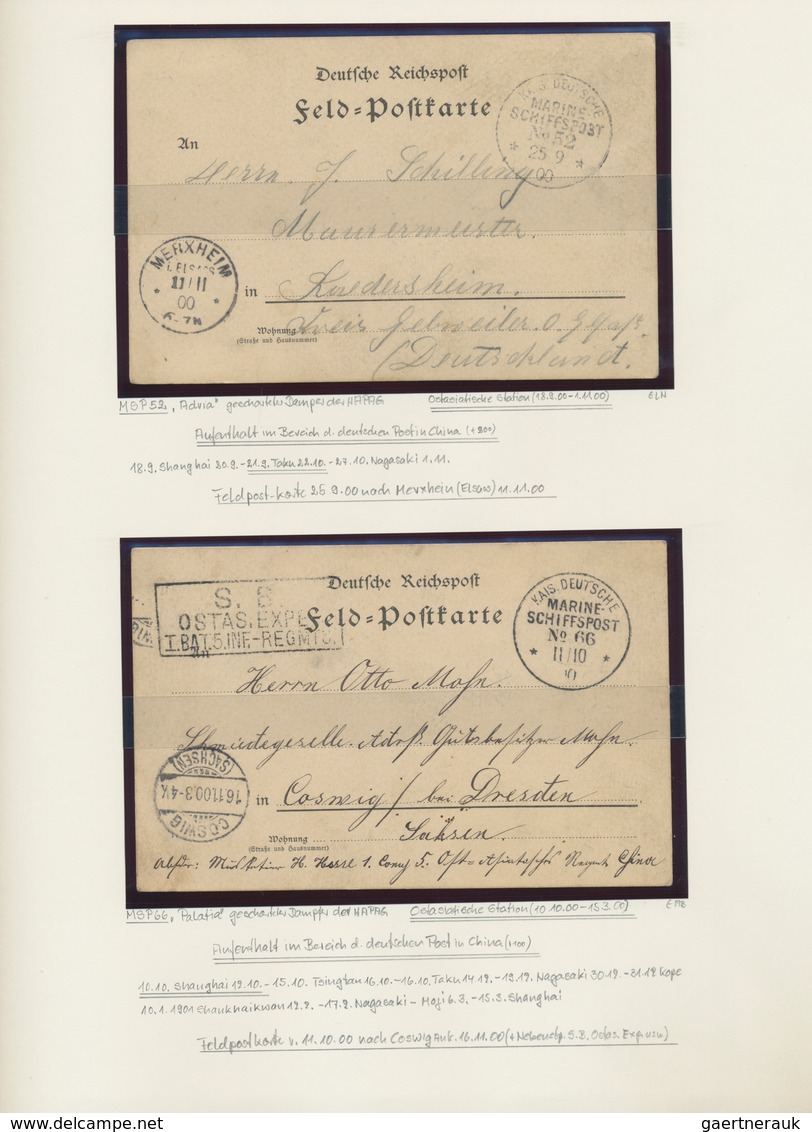 Deutsche Reichspost
Feld=Postkarte
KAIS. DEUTSCHE
MARINE-
SCHIFFSPOST
No 52
* 25 9 *
00
An
Herrn J. Schilling
Maurermeister.
MERXHEIM
i. ELSASS
* 11/11 *
00
6-7N
in Raedersheim.
Kreis Gebweiler O. Elsaß.
Wohnung
(Straße und Hausnummer)
(Deutschland.
MSP 52 „Adria" gecharterter Dampfer der HAPAG Ostasiatische Station (18.9.00-1.11.00)
Aufenthalt im Bereich d. deutschen Post in China (+200)
18.9. Shanghai 20.9. - 21.9. Taku 22.10. - 27.10. Nagasaki 1.11.
Feldpost-karte 25 9.00 nach Merxhein (Elsass) 11.11.00
S. B.
OSTAS. EXPE
I. BAT. 5. INF.-REGMTS.
Deutsche Reichspost
Feld=Postkarte
KAIS. DEUTSCHE
MARINE-
SCHIFFSPOST
No 66
* 11/10 *
An
Herrn Otto Mohn.
Schmiedegeselle. Adrß. Gutsbesitzer Mohn.
(SACHSEN)
16.11.00.3-4N
COSWIG
in Coswig / bei Dresden
Wohnung
(Straße und Hausnummer)
Sachsen.
Absdr: Musketier H. 1. Comp 5. Ost-Asiatisches Regmt China
MSP 66 „Palatia" gecharterter Dampfer der HAPAG Ostasiatische Station (10.10.00-15.3.00)
Aufenthalt im Bereich d. deutschen Post in China (+100)
10.10. Shanghai 12.10. - 15.10. Tsingtau 16.10. - 16.10. Taku 14.12. - 19.12. Nagasaki 30.12. - 31.12 Kope
10.1.1901 Shankhaikwan 12.2. - 17.2. Nagasaki - Moji 6.3. - 15.3. Shanghai
Feldpostkarte v. 11.10.00 nach Coswig Ank. 16.11.00 (+ Nebenstp. S.B. Ostas. Exp. usw)
delcampe.net
gaertnerauk